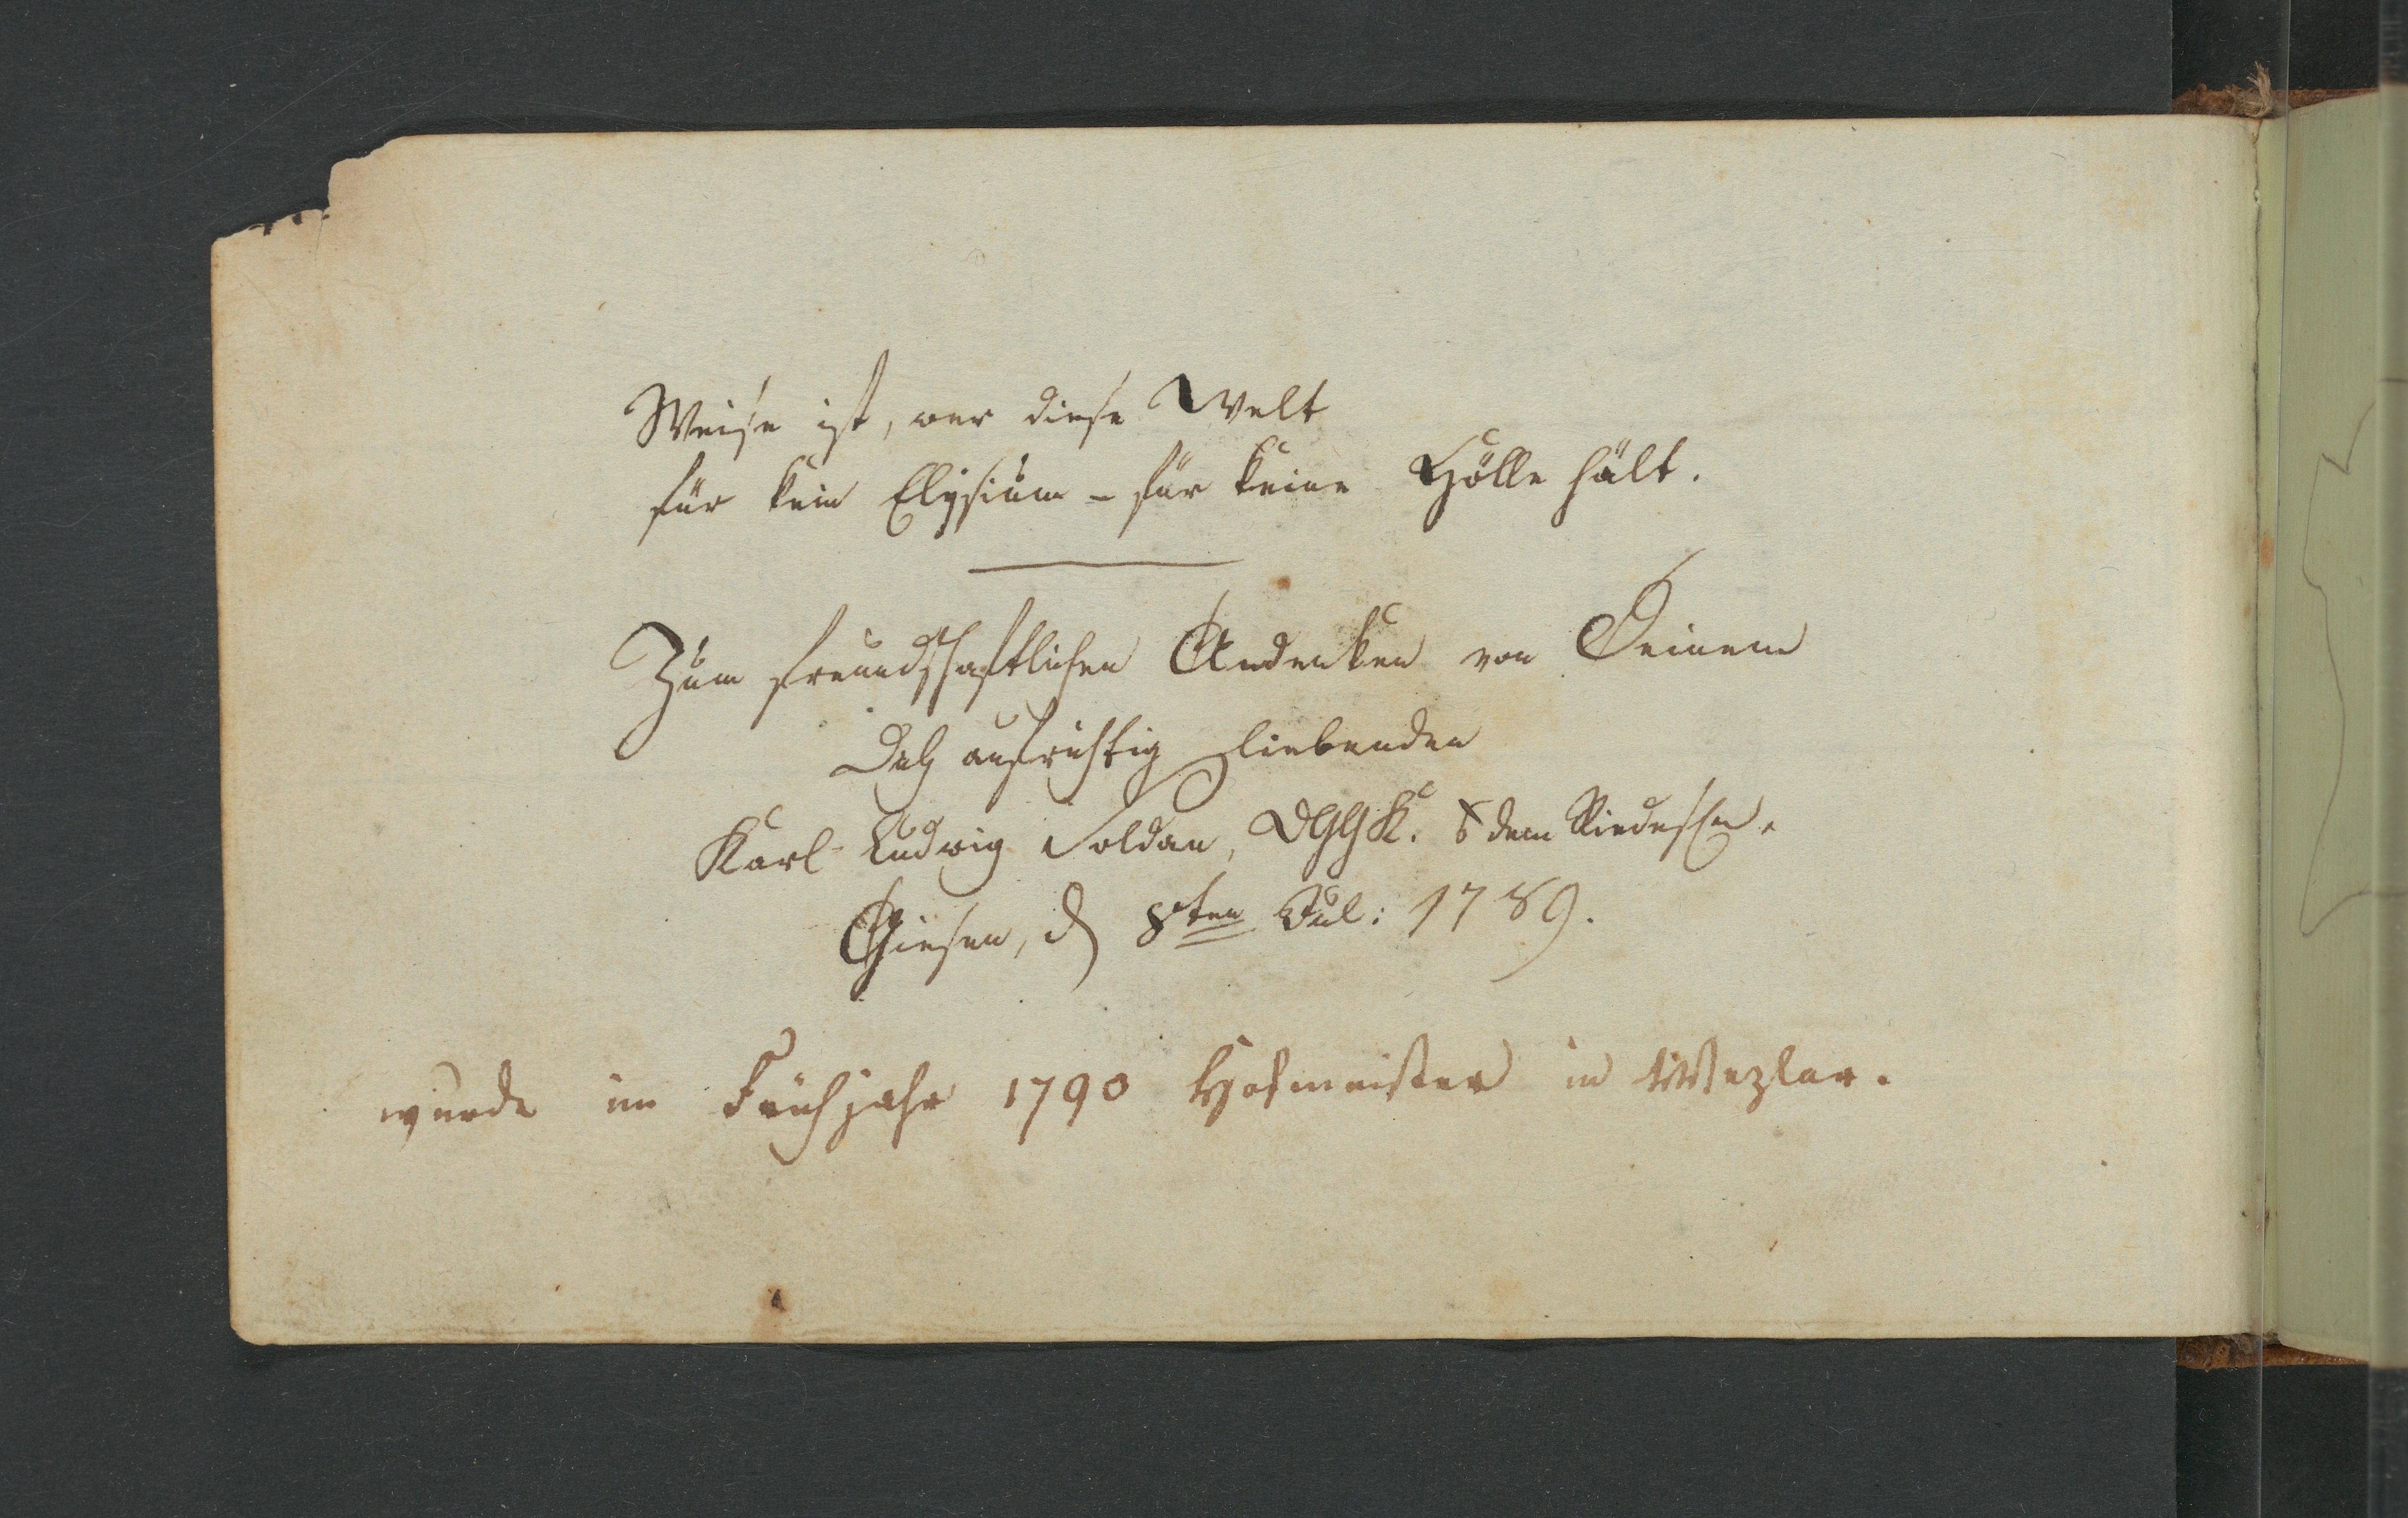 Weise ist, wer diese Welt
für kein Elysium – für keine Hölle hält.
Zum freundschaftlichen Andenken von Deinem
Dich aufrichtig liebenden
Karl Ludwig Soldan, DGGK. dem Riedeschen.
Giesen, d 8ten Jul: 1789.
wurde im Frühjahr 1790 Hofmeister in Wezlar.